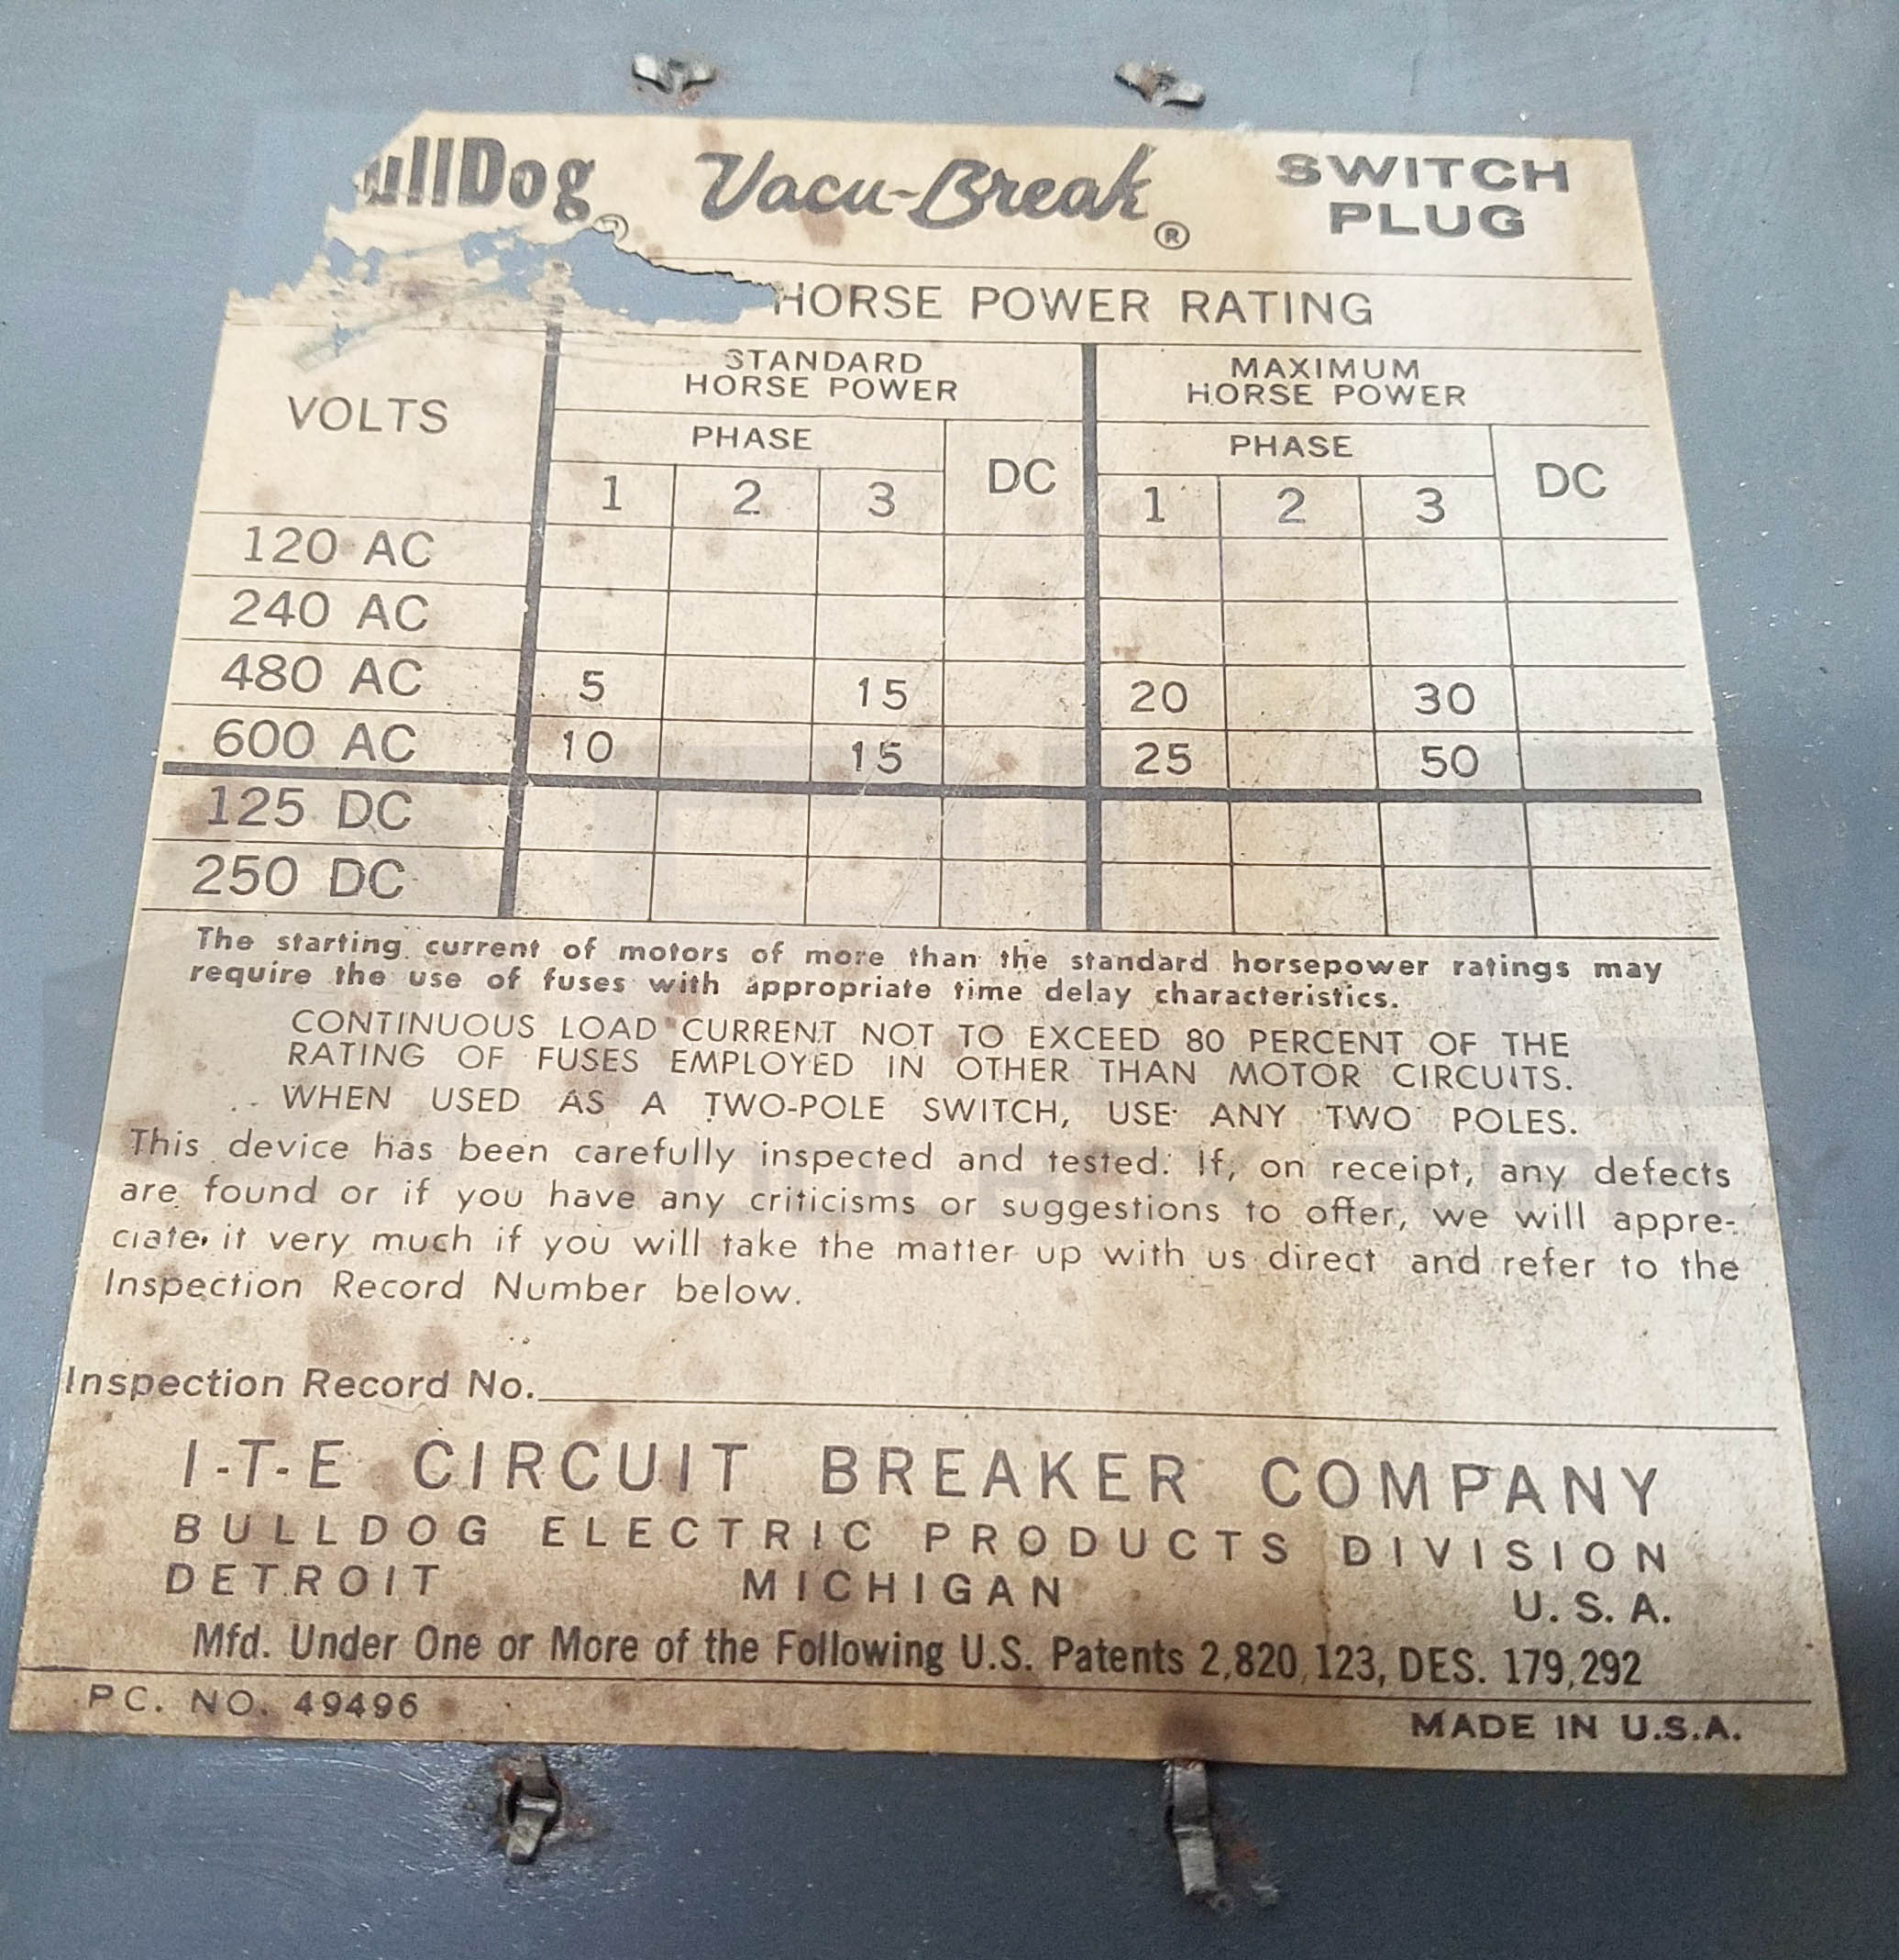 ullDog® Vacu-Break® SWITCH PLUG
HORSE POWER RATING
VOLTS STANDARD HORSE POWER MAXIMUM HORSE POWER
PHASE DC PHASE DC
1 2 3 1 2 3
120 AC
240 AC
480 AC 5 15 20 30
600 AC 10 15 25 50
125 DC
250 DC
The starting current of motors of more than the standard horsepower ratings may
require the use of fuses with appropriate time delay characteristics.
CONTINUOUS LOAD CURRENT NOT TO EXCEED 80 PERCENT OF THE
RATING OF FUSES EMPLOYED IN OTHER THAN MOTOR CIRCUITS.
WHEN USED AS A TWO-POLE SWITCH, USE ANY TWO POLES.
This device has been carefully inspected and tested. If, on receipt, any defects
are found or if you have any criticisms or suggestions to offer, we will appre-
ciate it very much if you will take the matter up with us direct and refer to the
Inspection Record Number below.
Inspection Record No.
I-T-E CIRCUIT BREAKER COMPANY
BULLDOG ELECTRIC PRODUCTS DIVISION
DETROIT MICHIGAN U.S.A.
Mfd. Under One or More of the Following U.S. Patents 2,820,123, DES. 179,292
PC. NO. 49496 MADE IN U.S.A.